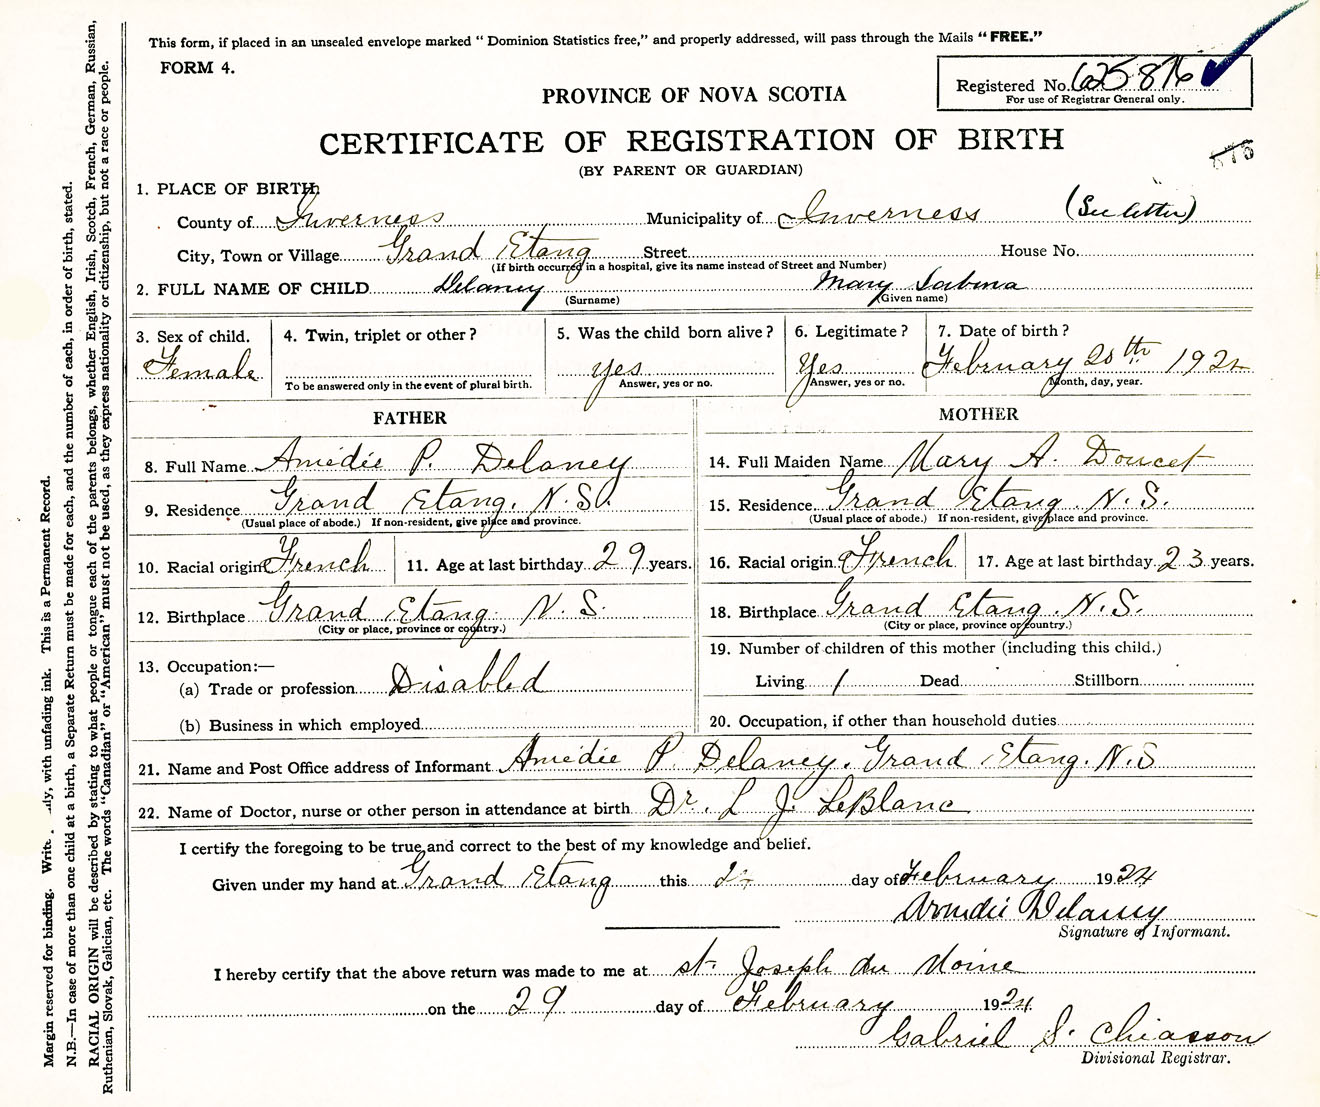 This form, if placed in an unsealed envelope marked "Dominion Statistics free," and properly addressed, will pass through the Mails "FREE."
FORM 4.
Registered No. 625876
For use of Registrar General only.
PROVINCE OF NOVA SCOTIA
CERTIFICATE OF REGISTRATION OF BIRTH
(BY PARENT OR GUARDIAN)
1. PLACE OF BIRTH
County of Inverness Municipality of Inverness (See letter)
City, Town or Village Grand Etang Street House No.
(If birth occurred in a hospital, give its name instead of Street and Number)
2. FULL NAME OF CHILD Delaney Mary Sabina
(Surname) (Given name)
3. Sex of child. 4. Twin, triplet or other? 5. Was the child born alive? 6. Legitimate? 7. Date of birth?
Female yes Yes February 28th 1924
To be answered only in the event of plural birth. Answer, yes or no. Answer, yes or no. Month, day, year.
FATHER
8. Full Name Amédée P. Delaney
9. Residence Grand Etang. N.S.
(Usual place of abode.) If non-resident, give place and province.
10. Racial origin French 11. Age at last birthday 29 years.
12. Birthplace Grand Etang. N.S.
(City or place, province or country.)
13. Occupation:—
(a) Trade or profession Disabled
(b) Business in which employed
MOTHER
14. Full Maiden Name Mary A. Doucet
15. Residence Grand Etang. N.S.
(Usual place of abode.) If non-resident, give place and province.
16. Racial origin French 17. Age at last birthday 23 years.
18. Birthplace Grand Etang. N.S.
(City or place, province or country.)
19. Number of children of this mother (including this child.)
Living 1 Dead Stillborn
20. Occupation, if other than household duties
21. Name and Post Office address of Informant Amédée P. Delaney. Grand Etang. N.S
22. Name of Doctor, nurse or other person in attendance at birth Dr. L J. LeBlanc
I certify the foregoing to be true and correct to the best of my knowledge and belief.
Given under my hand at Grand Etang this day of February 1924
Delaney
Signature of Informant.
I hereby certify that the above return was made to me at St Joseph du Moine
on the 29 day of February 1924
Gabriel S. Chiasson
Divisional Registrar.
Margin reserved for binding. with unfading ink. This is a Permanent Record.
N.B.—In case of more than one child at a birth, a Separate Return must be made for each, and the number of each, in order of birth, stated.
RACIAL ORIGIN will be described by stating to what people or tongue each of the parents belongs, whether English, Irish, Scotch, French, German, Russian,
Ruthenian, Slovak, Galician, etc. The words "Canadian" or "American" must not be used, as they express nationality or citizenship, but not a race or people.